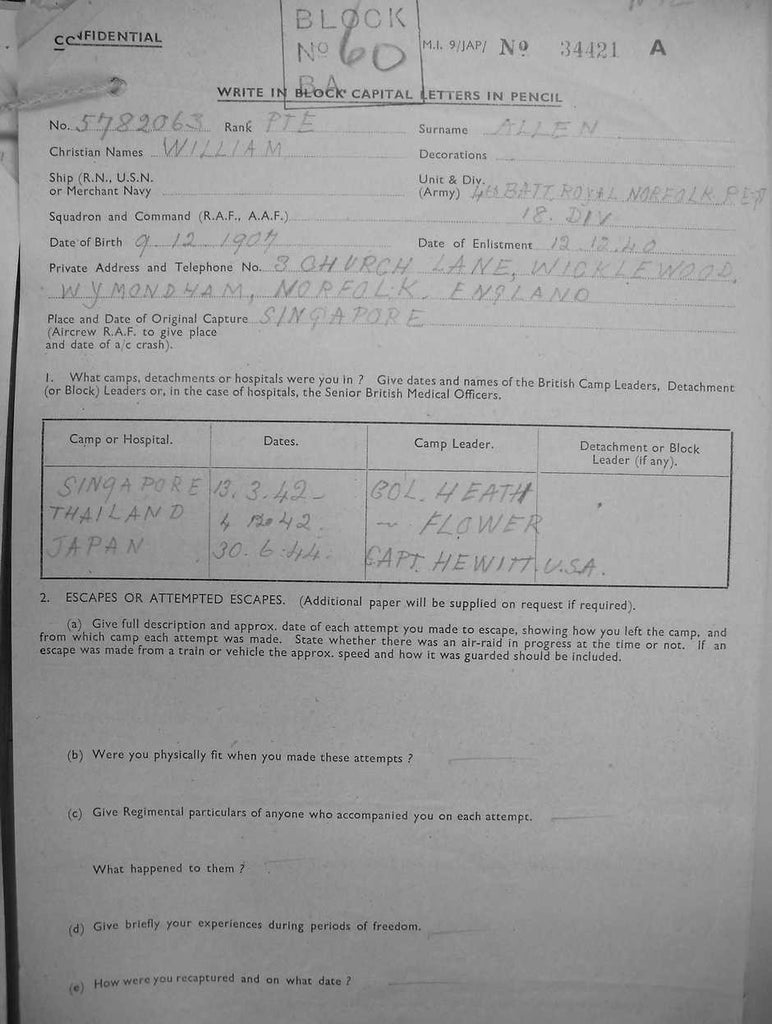 BLOCK
CONFIDENTIAL
No 60
M.I. 9/JAP/ No 34421 A
BA
WRITE IN BLOCK CAPITAL LETTERS IN PENCIL
No. 5782063 Rank PTE Surname ALLEN
Christian Names WILLIAM Decorations
Ship (R.N., U.S.N. or Merchant Navy
Unit & Div. (Army) 4th BATT ROYAL NORFOLK REGT
Squadron and Command (R.A.F., A.A.F.) 18. DIV
Date of Birth 9.12.1907 Date of Enlistment 12.12.40
Private Address and Telephone No. 3 CHURCH LANE, WICKLEWOOD,
WYMONDHAM, NORFOLK. ENGLAND
Place and Date of Original Capture SINGAPORE
(Aircrew R.A.F. to give place
and date of a/c crash).
1. What camps, detachments or hospitals were you in ? Give dates and names of the British Camp Leaders, Detachment
(or Block) Leaders or, in the case of hospitals, the Senior British Medical Officers.
Camp or Hospital. Dates. Camp Leader. Detachment or Block
Leader (if any).
SINGAPORE 13.3.42- COL. HEATH
THAILAND 4 42. ~ FLOWER
JAPAN 30.6.44. CAPT. HEWITT U.S.A.
2. ESCAPES OR ATTEMPTED ESCAPES. (Additional paper will be supplied on request if required).
(a) Give full description and approx. date of each attempt you made to escape, showing how you left the camp, and
from which camp each attempt was made. State whether there was an air-raid in progress at the time or not. If an
escape was made from a train or vehicle the approx. speed and how it was guarded should be included.
(b) Were you physically fit when you made these attempts ?
(c) Give Regimental particulars of anyone who accompanied you on each attempt.
What happened to them ?
(d) Give briefly your experiences during periods of freedom.
(e) How were you recaptured and on what date ?